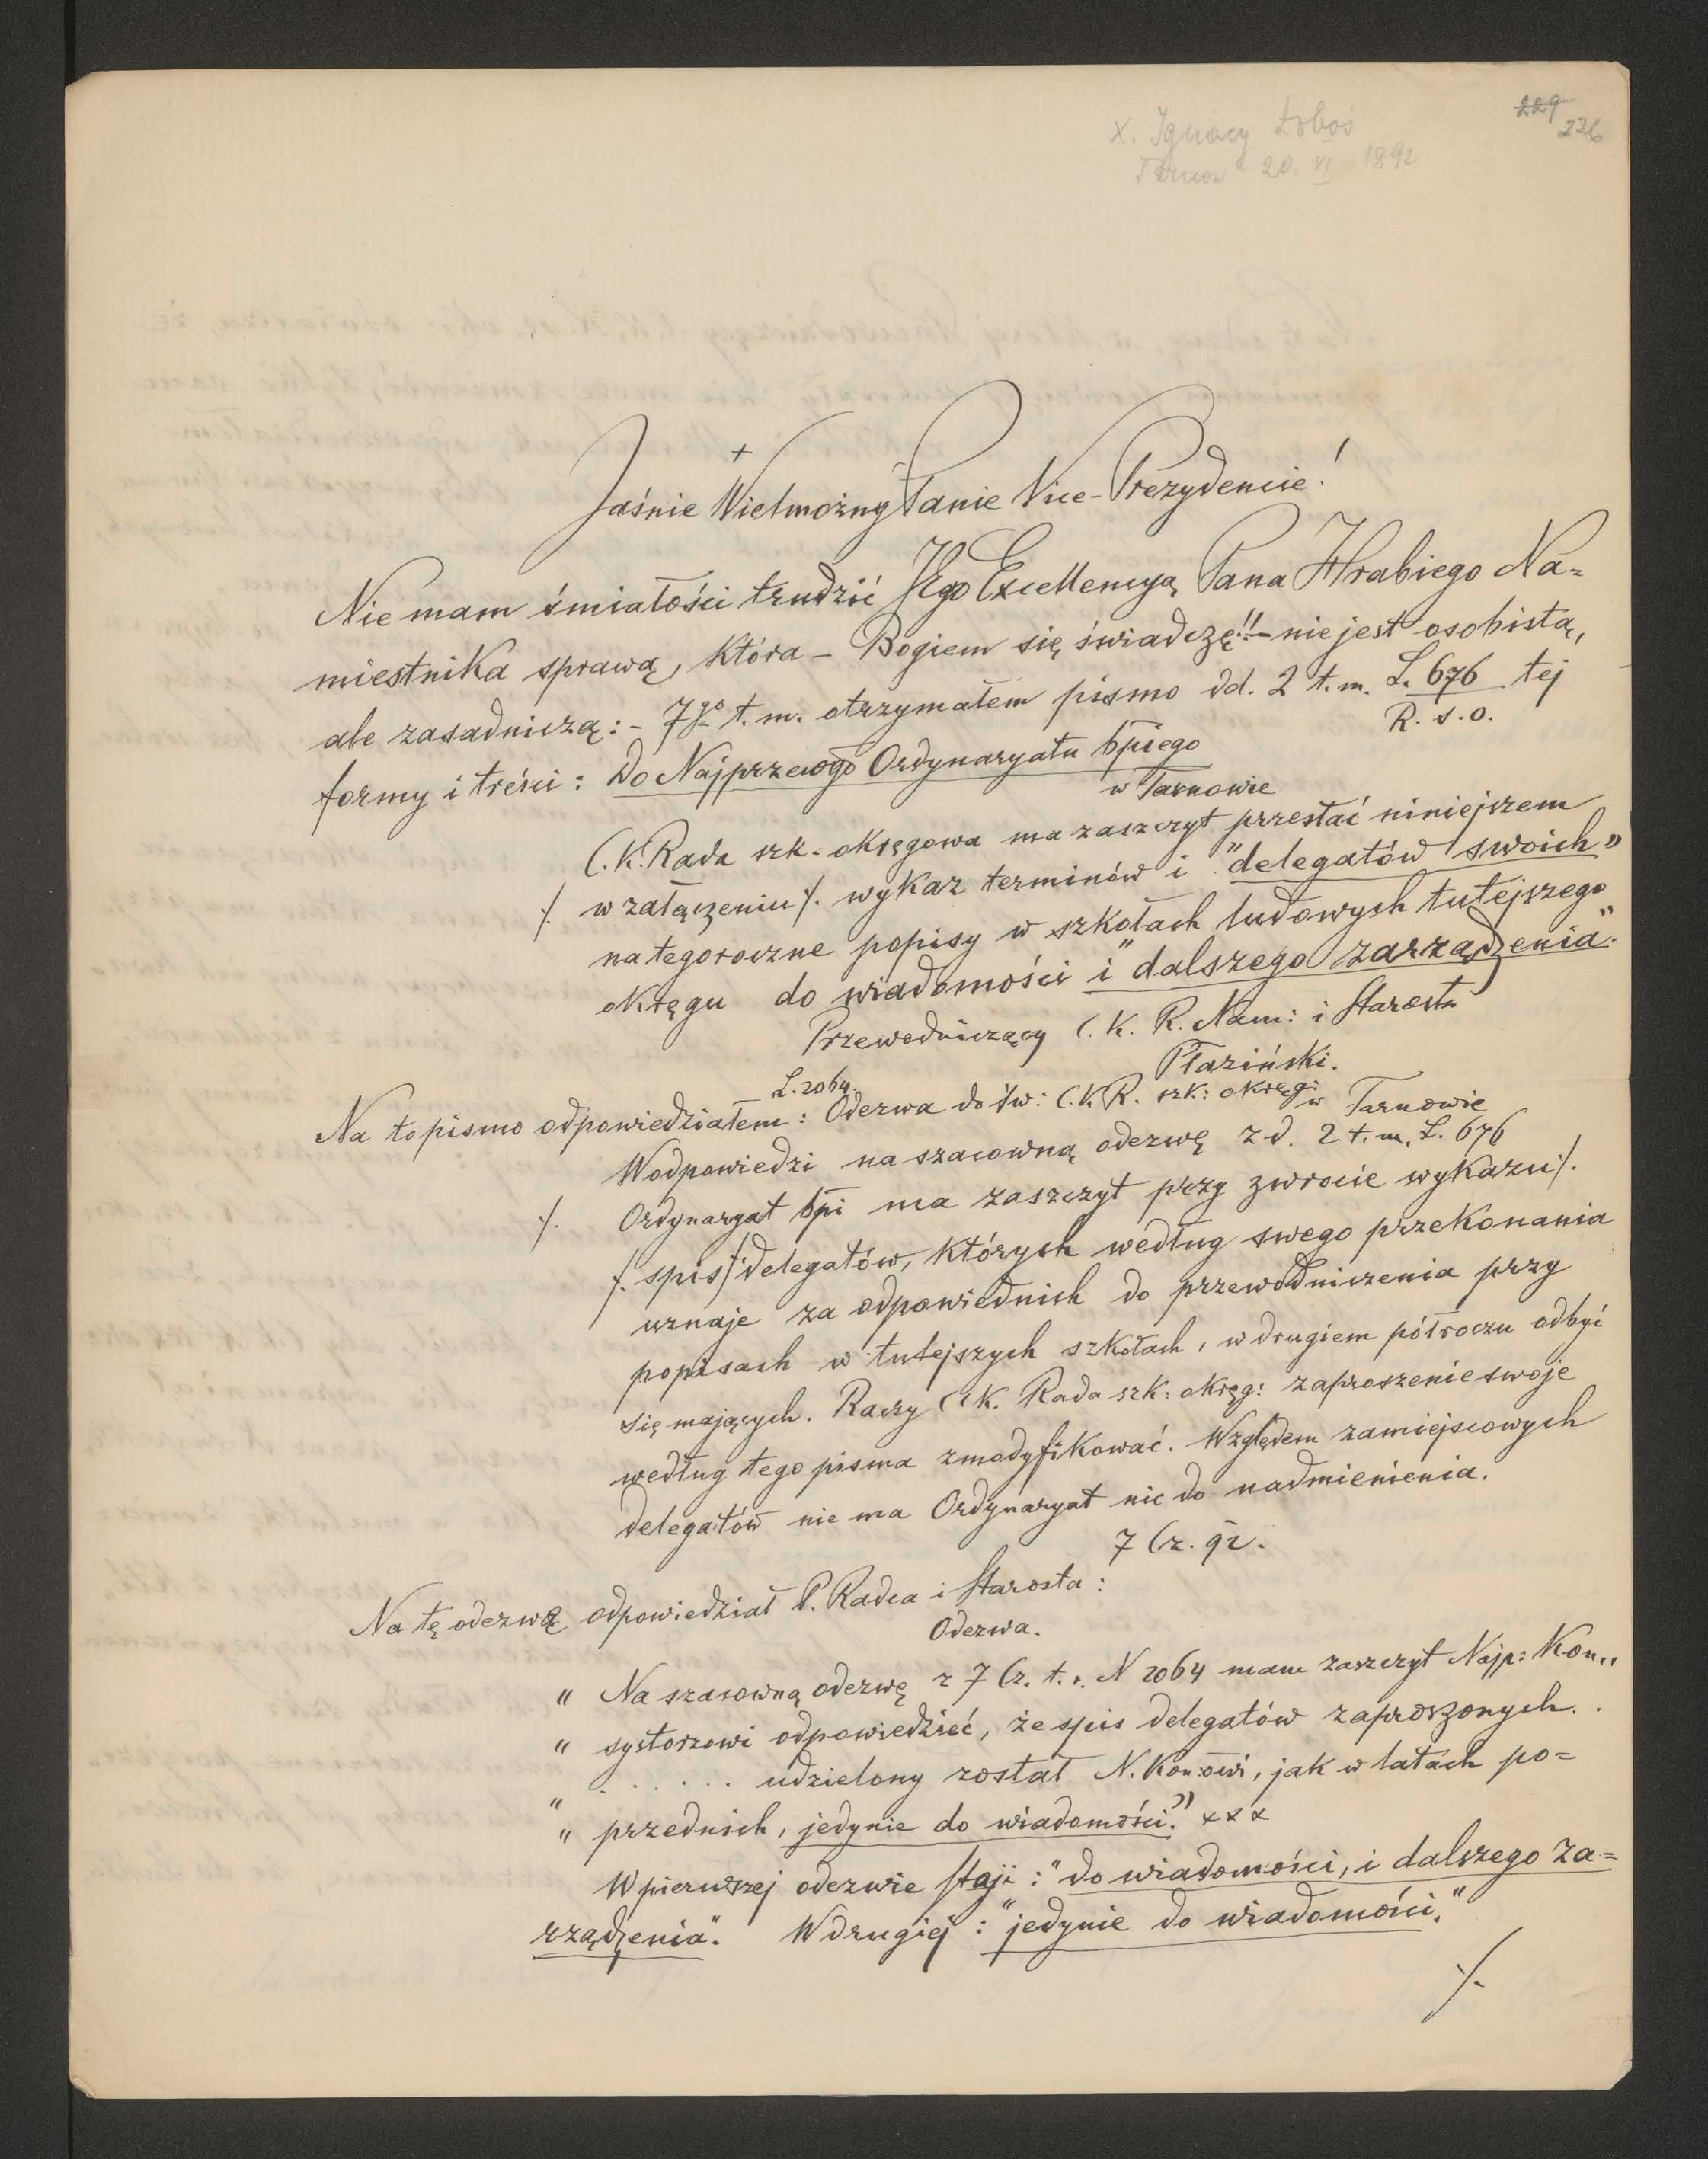 229 236
X. Ignacy Łoboś
Tarnów 20. VI 1892
+
Jaśnie Wielmożny Panie Vice-Prezydencie!
Nie mam śmiałości trudzić Jego Excellencyą Pana Hrabiego Na=
miestnika sprawą, która - Bogiem się świadczę!! - nie jest osobistą,
ale zasadniczą: - 7go t. m. otrzymałem pismo dd. 2 t. m. L. 676 tej
R. s. o.
formy i treści: Do Najprzewgo Ordynaryatu bpiego
w Tarnowie
C. K. Rada szk. okręgowa ma zaszczyt przesłać niniejszem
/. w załączeniu /. wykaz terminów i "delegatów swoich"
na tegoroczne popisy w szkołach ludowych tutejszego
okręgu do wiadomości i "dalszego zarządzenia."
Przewodniczący C. K. R. Nam: i Starosta
Płaziński.
L. 2064.
Na to pismo odpowiedziałem: Odezwa do św: C. K. R. szk: okręg: w Tarnowie
W odpowiedzi na szacowną odezwę z d. 2 t. m. L. 676
/. Ordynaryat bpi ma zaszczyt przy zwrocie wykazu /.
/. spis /. delegatów, których według swego przekonania
uznaje za odpowiednich do przewodniczenia przy
popisach w tutejszych szkołach, w drugiem półroczu odbyć
się mających. Raczy C. K. Rada szk: okręg: zaproszenie swoje
według tego pisma zmodyfikować. Względem zamiejscowych
delegatów nie ma Ordynaryat nic do nadmienienia.
7 Cz. 92.
Na tę odezwę odpowiedział P. Radca i Starosta:
Odezwa.
" Na szacowną odezwę z 7 Cz. t. r. N 2064 mam zaszczyt Najp: Kon„
" systorzowi odpowiedzieć, że spis delegatów zaproszonych . .
" . . . . . udzielony został N. Kon:owi, jak w latach po=
" przednich, jedynie do wiadomości." x x x
W pierwszej odezwie stoji: "do wiadomości, i dalszego za=
rządzenia". W drugiej: "jedynie do wiadomości."
/.